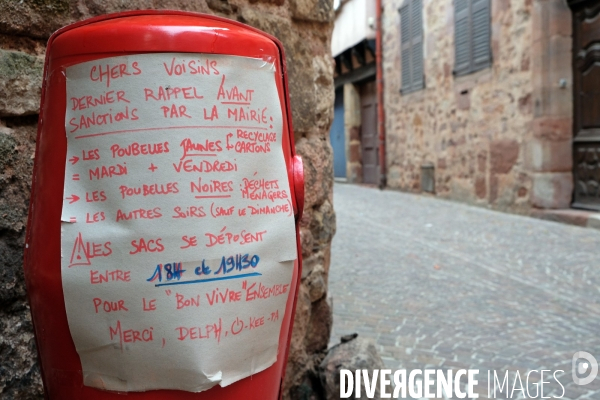 CHERS VOISINS
DERNIER RAPPEL AVANT
SANCTIONS PAR LA MAIRIE:
→ LES POUBELLES JAUNES [RECYCLAGE
CARTONS
= MARDI + VENDREDI
→ LES POUBELLES NOIRES : DÉCHETS
MÉNAGERS
= LES AUTRES SOIRS (SAUF LE DIMANCHE)
⚠ LES SACS SE DÉPOSENT
ENTRE 18H et 19H30
POUR LE "BON VIVRE" ENSEMBLE
MERCI, DELPH,
DIVERGENCE IMAGES